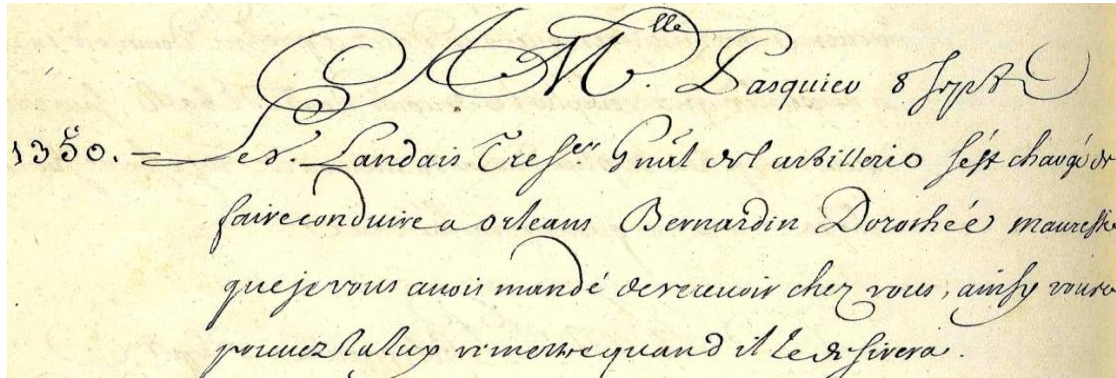 A M.lle Pasquier 8 Sept
1350. - Le S. Landais Tres.er Gnãl de l'artillerie s'est chargé de
faire conduire a orleans Bernardin Dorothée mauresse
que je vous avois mandé de recevoir chez vous, ainsy vous
pouvez la luy remettre quand il le desirera.